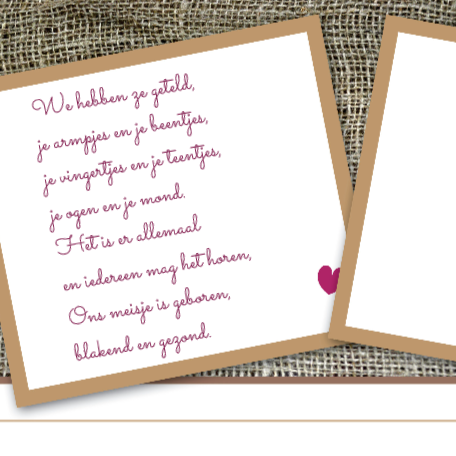 We hebben ze geteld,
je armpjes en je beentjes,
je vingertjes en je teentjes,
je ogen en je mond.
Het is er allemaal
en iedereen mag het horen,
Ons meisje is geboren,
blakend en gezond.